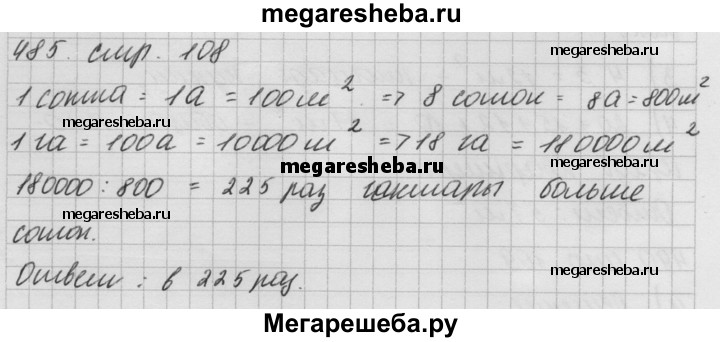 megaresheba.ru
485. стр. 108
megaresheba.ru
1 сотка = 1а = 100м² => 8 соток = 8а = 800м²
megaresheba.ru
1 га = 100а = 10000м² => 18 га = 180000м²
megaresheba.ru
180000 : 800 = 225 раз гектары больше
megaresheba.ru
соток.
Ответ : в 225 раз.
megaresheba.ru
Мегарешеба.ру